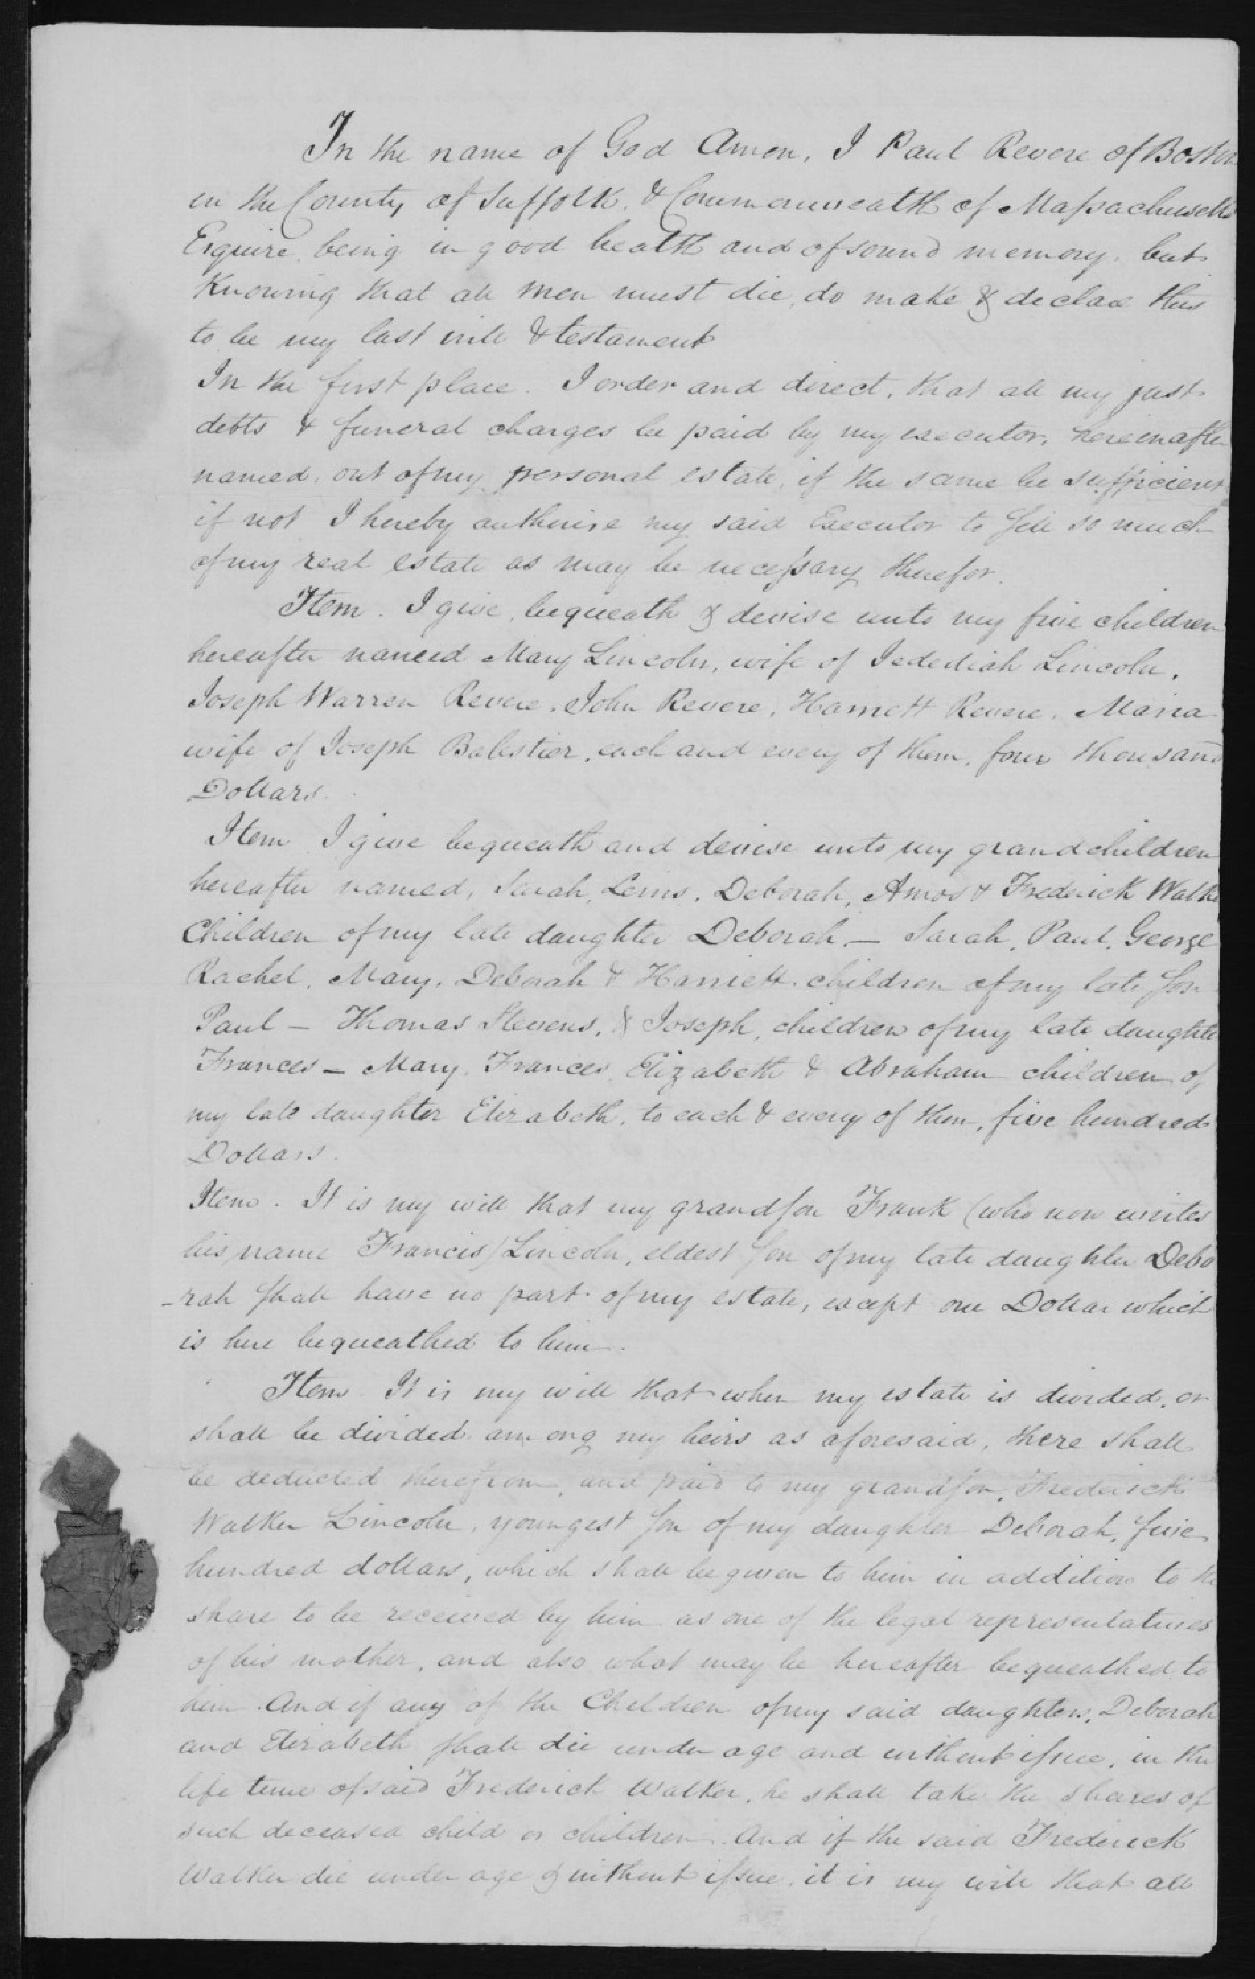 In the name of God Amen, I Paul Revere of Boston
in the County of Suffolk, & Commonwealth of Massachusetts
Esquire, being in good health and of sound memory, but
Knowing that all men must die, do make & declare this
to be my last will & testament
In the first place. I order and direct, that all my just
debts & funeral charges be paid by my executor, hereinafter
named, out of my personal estate, if the same be sufficient
if not I hereby authorise my said Executor to sell so much
of my real estate as may be necessary therefor.
Item. I give, bequeath & devise unto my five children
hereafter named Mary Lincoln, wife of Jedediah Lincoln,
Joseph Warren Revere, John Revere, Harriett Revere, Maria
wife of Joseph Balestier, each and every of them, four thousand
Dollars.
Item I give bequeath and devise unto my grandchildren
hereafter named, Sarah, Lewis, Deborah, Amos & Frederick Walker
Children of my late daughter Deborah, — Sarah, Paul, George
Rachel, Mary, Deborah & Harriett children of my late son
Paul — Thomas Stevens, & Joseph, children of my late daughter
Frances — Mary, Frances, Elizabeth & Abraham children of
my late daughter Elizabeth, to each & every of them, five hundred
Dollars.
Item. It is my will that my grandson Frank (who now writes
his name Francis) Lincoln, eldest son of my late daughter Debo
-rah shall have no part of my estate, except one Dollar which
is here bequeathed to him.
Item. It is my will that when my estate is divided, or
shall be divided among my heirs as aforesaid, there shall
be deducted therefrom, and paid to my grandson, Frederick
Walker Lincoln, youngest son of my daughter Deborah, five
hundred dollars, which shall be given to him in addition to the
share to be received by him as one of the legal representatives
of his mother, and also what may be hereafter bequeathed to
him. And if any of the Children of my said daughters, Deborah
and Elizabeth shall die under age and without issue, in the
life time of said Frederick Walker, he shall take the shares of
such deceased child or children. And if the said Frederick
Walker die under age & without issue, it is my will that all